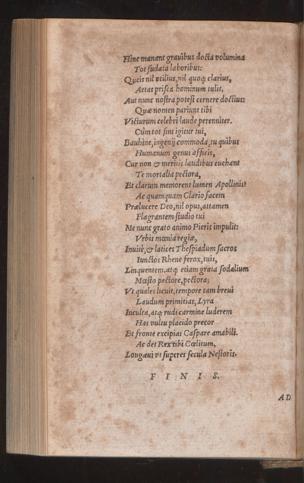 Hinc manant gravibus docta volumina
Tot sudata laboribus:
Queis nil utilius, nil quoq; clarius,
Aetas prisca hominum tulit,
Aut nunc nostra potest cernere doctius:
Quae nomen pariunt tibi
Victurum celebri laude perenniter.
Cùm tot sint igitur tui,
Bauhine, ingenij commoda, tu quibus
Humanum genus afficis,
Cur non & meritis laudibus evehant
Te mortalia pectora,
Et clarum memorent lumen Apollinis?
Ac quamquam Clario facem
Praelucere Deo, nil opus, attamen
Flagrantem studio tui
Me nunc grato animo Pieris impulit:
Urbis moenia regiae,
Invisè, & latices Thespiadum sacros
Iunctos Rhene ferox, tuis,
Linquentem, atq; etiam grata sodalium
Moesto pectore, pectora;
Ut quales licuit, tempore tam brevi
Laudum primitias, Lyra
Inculta, atq; rudi carmine luderem
Has vultu placido precor
Et fronte excipias Caspare amabili.
Ac det Rex tibi Coelitum,
Longaevi ut superes secula Nestoris.
F I N I S.
AD